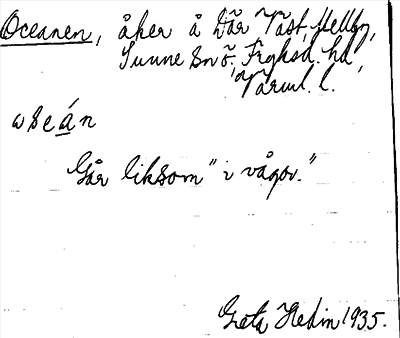 Oceanen, åker å Där Väst, Mellby,
Sunne Sn ö. Fryksd. hd
Värml. l.
oseán
Går liksom "i vågor."
Greta Hedin 1935.